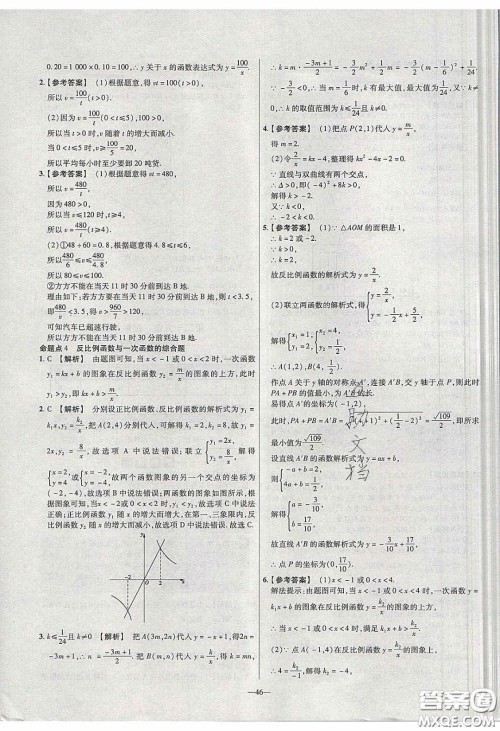 0.20=1 000×0.10=100,∴y关于x的函数表达式为y=100/x.
2.【参考答案】 (1)根据题意,得vt=100(t>0),
所以v=100/t(t>0).
(2)因为v=100/t(0<t≤5),100>0,
所以当t>0时,v随着t的增大而减小.
当0<t≤5时,v≥100/5=20,
所以平均每小时至少要卸20吨货.
3.【参考答案】 (1)根据题意得vt=480,
所以v=480/t.
因为480>0,
所以当v≤120时,t≥4,
所以v=480/t(t≥4).
(2)①48+60=0.8,根据题意得4.8≤t≤6,
所以480/6≤v≤480/4.8,
所以80≤v≤100.
②方方不能在当天11时30分前到达B地
理由如下:若方方要在11时30分前到达B地,则t<3.5,
即480/v<3.5,得v>960/7>120,
可知汽车已超速行驶.
故方方不能在当天11时30分前到达B地.
命题点4 反比例函数与一次函数的综合题
1.C 【解析】 由题图可知,当x<-1或0<x<2时,一次函数
y₁=kx+b的图象在反比例函数y₂=m/x的图象的上方,此时
y₁>y₂,即kx+b>m/x.
2.C 【解析】 分别设正比例函数、反比例函数解析式为y₁=k₁x,
y₂=k₂/x,把A(2,4)分别代入,可得k₁=2,k₂=8,故y₁=2x,
y₂=8/x,选项A中说法错误;联立{y=2x, y=8/x,解得
{x=2, y=4或{x=-2, y=-4,故两个函数图象的另一个交点的坐标为
(-2,-4),故选项B中说法错误;两函数的图象如图所示,根
据图象可知,当x<-2或0<x<2时,y₁<y₂,故选项C中说法
正确;正比例函数y₁随x的增大而增大,在第一、三象限内,反
比例函数y₂随x的增大而减小,故选项D中说法错误.
y
-2 O 2 x
3.k≤1/24且k≠0 【解析】 把A(3m,2n)代入y=-x+m,得2n=
-3m+1,∴n=(-3m+1)/2.把B(m,n)代入y=k/x,得k=mn,
∴k=m·(-3m+1)/2=-3/2m²+1/2m=-3/2(m-1/6)²+1/24.∵
-3/2<0,∴当m=1/6时,k有最大值,最大值为1/24.又∵k≠
0,∴k的取值范围为k≤1/24且k≠0.
4.【参考答案】 (1)把点P(2,1)代入y=m/x,
得m=2.
(2)令2/x=kx-4,整理得kx²-4x-2=0.
∵直线与双曲线有两个交点,
∴Δ>0,即(-4)²+8k>0,
解得k>-2.
又∵k<0,
∴-2<k<0.
5.【参考答案】 (1)∵△AOM的面积是1,
∴k=2或-2.
∵k>0,∴k=2,
故反比例函数的解析式为y=2/x.
作点A关于y轴的对称点A′,连接A′B,交y轴于点P,则此时
PA+PB的值最小.
易得点A′的坐标为(-1,2),
最小值为√109/2.
设直线A′B的函数解析式为y=ax+b,
解得{a=-3/10, b=17/10,
故直线A′B的函数解析式为y=-3/10x+17/10,
∴点P的坐标为(0,17/10).
6.【参考答案】 (1)x<-1或0<x<4.
解法提示:由题图可知,当x<-1或0<x<4时,一次函数y=
k₁x+b的图象在反比例函数y=k₂/x的图象的上方,
∴当x<-1或0<x<4时,满足k₁x+b>k₂/x.
(2)∵点A(-1,4)在反比例函数y=k₂/x的图象上,
∴4=k₂/-1,解得k₂=-4,
—46—
助
文
档
答案圈
MXQE.COM